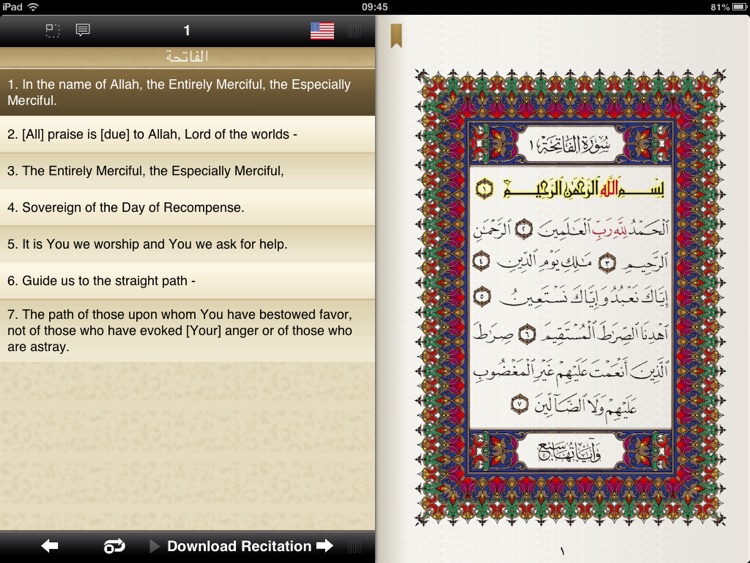 iPad
09:45
81%
1
الفاتحة
1. In the name of Allah, the Entirely Merciful, the Especially
Merciful.
2. [All] praise is [due] to Allah, Lord of the worlds -
3. The Entirely Merciful, the Especially Merciful,
4. Sovereign of the Day of Recompense.
5. It is You we worship and You we ask for help.
6. Guide us to the straight path -
7. The path of those upon whom You have bestowed favor,
not of those who have evoked [Your] anger or of those who
are astray.
Download Recitation
سُورَةُ الفَاتِحَةِ ١
بِسْمِ ٱللَّهِ ٱلرَّحْمَٰنِ ٱلرَّحِيمِ ١
ٱلْحَمْدُ لِلَّهِ رَبِّ ٱلْعَٰلَمِينَ ٢ ٱلرَّحْمَٰنِ
ٱلرَّحِيمِ ٣ مَٰلِكِ يَوْمِ ٱلدِّينِ ٤
إِيَّاكَ نَعْبُدُ وَإِيَّاكَ نَسْتَعِينُ ٥
ٱهْدِنَا ٱلصِّرَٰطَ ٱلْمُسْتَقِيمَ ٦ صِرَٰطَ
ٱلَّذِينَ أَنْعَمْتَ عَلَيْهِمْ غَيْرِ ٱلْمَغْضُوبِ
عَلَيْهِمْ وَلَا ٱلضَّآلِّينَ ٧
وَآيَاتُهَا سَبْعٌ
١